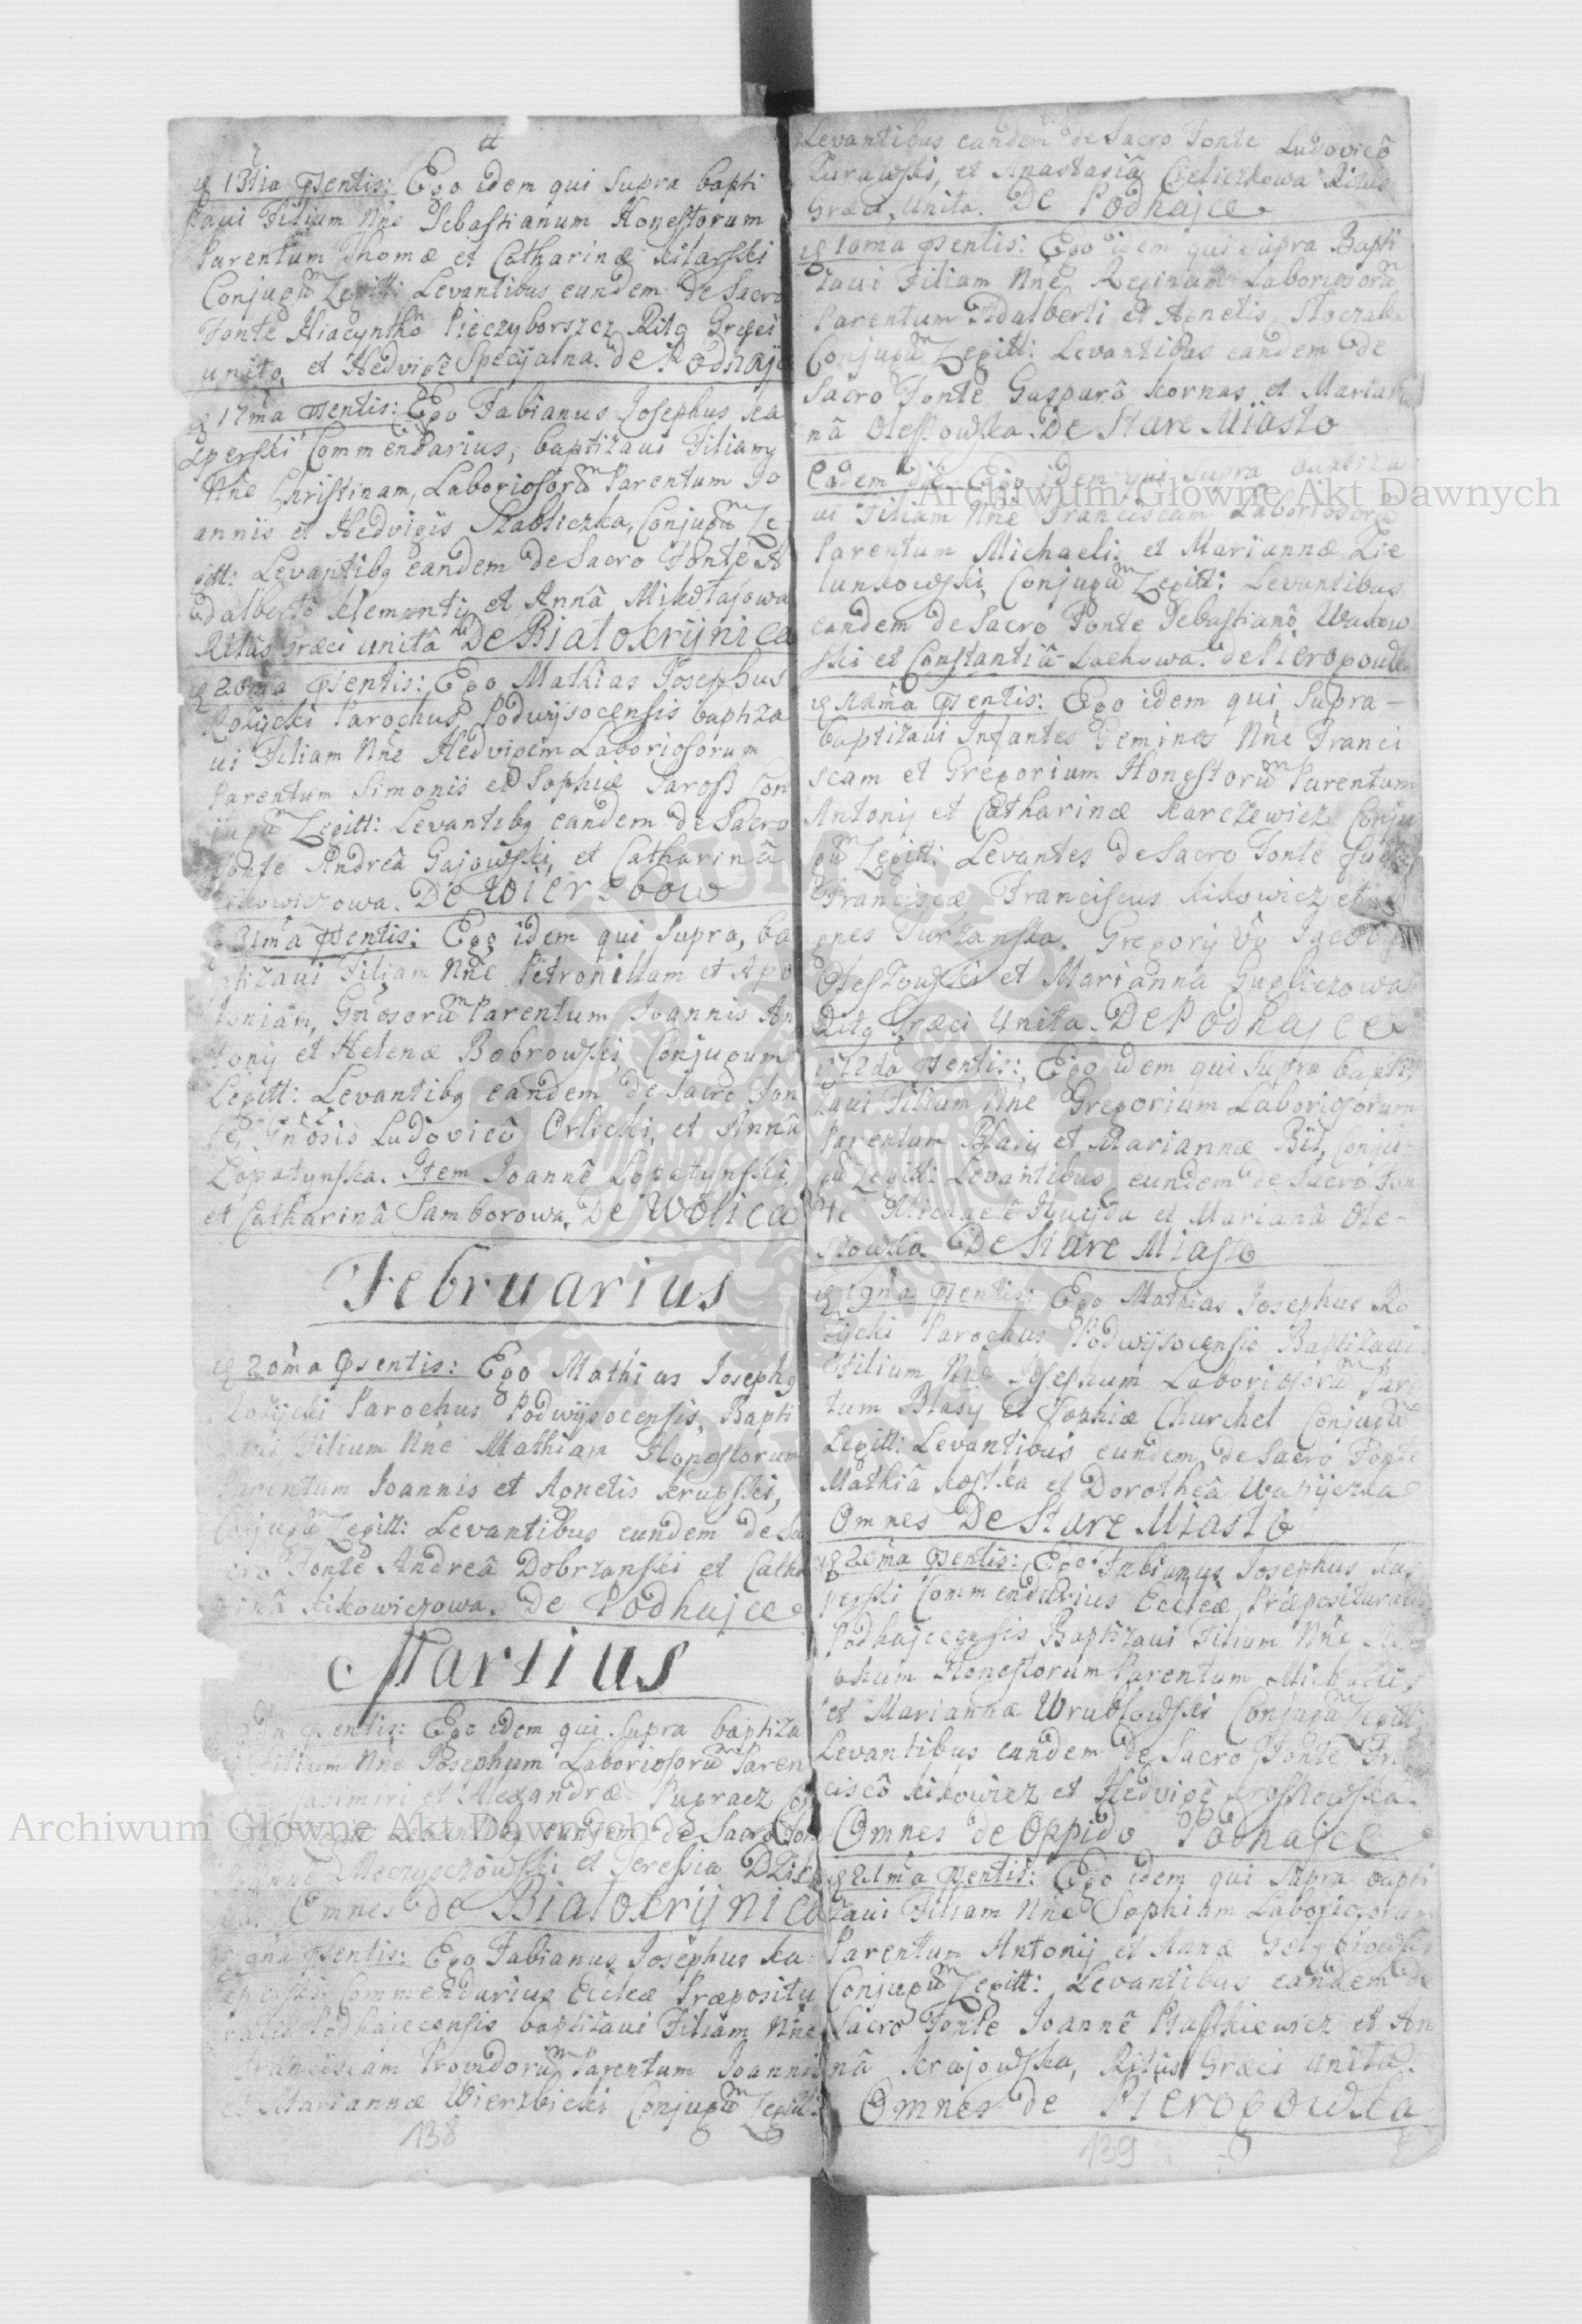 #
13tia psentis: Ego idem qui supra bapti
zaui Filium Nne Sebastianum Honestorum
Parentum Thomæ et Catharinæ Kitarski
Conjugũ Legitt: Levantibus eundem de Sacro
Fonte Hiacynthô Pieczyborszcz Ritq Græci
unito, et Hedvige Specyalna. de Podhajce
17ma psentis: Ego Fabianus Josephus Ka
sperski Commendarius, baptizaui Filiam
Nne Christinam, Laboriosorũ Parentum Jo
annis et Hedvigis Stabliczka, Conjugũ Le
gitt: Levantibq eandem de Sacro Fonte A
dalberto Klementy et Annâ Mikołajowa
Ritûs Græci unitâ De Białokrynica
20ma psentis: Ego Mathias Josephus
Rożycki Parochus Podwysocensis baptiza
ui Filiam Nne Hedvigem Laboriosorum
Parentum Simonis et Sophiæ Jaross Con
jugũ Legitt: Levantibq eandem de Sacro
Fonte Andreâ Gajowski, et Catharinâ
Kikowiczowa. De Wierzbow
31ma psentis: Ego idem qui Supra, ba
ptizaui Filiam Nne Petronillam et Apo
loniam, Gñosorũ Parentum Joannis An
tonij et Helenæ Bobrowski, Conjugum
Legitt: Levantibq eandem de Sacro Fon
te, Gñosis Ludovicô Orlicki, et Annâ
Łopatynska. Item Joannê Lopatynski,
et Catharinâ Samborowa, De Wolica
Februarius
20ma psentis: Ego Mathias Josephq
Rożycki Parochus Podwysocensis, Bapti
zaui Filium Nne Mathiam Honestorum
Parentum Joannis et Agnetis Krupski,
Conjugũ Legitt: Levantibus eundem de Sa
cro Fonte Andreâ Dobrzanski et Catha
rinâ Kikowiczowa. De Podhajce
Martius
2da psentis: Ego idem qui supra baptiza
Filium Nne Josephum Laboriosorũ Paren
Casimiri et Alexandræ Pugracz Con
Levantibq eundem de Sacro Fon
Joanne Meczyszczowski et Teressia
Omnes de Białokrynica
9na psentis: Ego Fabianus Josephus Ka
sperski Commendarius Eccleæ Præpositu
ralis Podhajecensis baptizaui Filiam Nne
Franciscam Providorũ Parentum Joannis
et Mariannæ Wierzbicki Conjugũ Legitt:
138
Levantibus eandem de Sacro Fonte Ludovicô
Zurawski, et Anastasiâ Cieliczkowa Ritus
Græci, Unita. De Podhajce
10ma psentis: Ego idem qui supra Bapti
zaui Filiam Nne Reginam Laboriosorũ
Parentum Adalberti et Agnetis
Conjugũ Legitt: Levantibus eandem de
Sacro Fonte Gasparô Kornas et Marian
nâ Olessowska. De Stare Miasto
Eadem diê Ego idem qui supra baptiza
ui Filiam Nne Franciscam Laboriosorũ
Parentum Michaelis et Mariannæ Zie
lunkowski, Conjugũ Legitt: Levantibus
eandem de Sacro Fonte Sebastianô Wakow
ski et Constantiâ Lachowa. de
psentis: Ego idem qui Supra –
baptizaui Infantes Geminos Nne Franci
scam et Gregorium Honestorũ Parentum
Antonij et Catharinæ Karczewicz Conju
gũ Legitt: Levantes de Sacro Fonte
Franciscæ Franciscus Kikowicz et A
gnes Turzanska. Gregorij Vo Jacobq
Olestowski et Marianna Gugliczowa
Ritq Græci Unita. De Podhajce
12da psentis: Ego idem qui supra bapti
zaui Filium Nne Gregorium Laboriosorum
Parentum Blasij et Mariannæ Bil, Conju
gũ Legitt: Levantibus eundem de Sacro Fon
te Michaelê Huejda et Marianâ Ole-
stowska De Stare Miasto
19na psentis: Ego Mathias Josephus Ro
życki Parochus Podwysocensis Baptizaui
Filium Nne Josephum Laboriosorũ Paren
tum Blasij et Sophiæ Churchel Conjugũ
Legitt: Levantibus eundem de Sacro Fonte
Mathiâ Kostka et Dorotheâ Wapijczka
Omnes De Stare Miasto
20ma psentis: Ego Fabianus Josephus Ka
sperski Commendarius Eccleæ Præposituralis
Podhajecensis Baptizaui Filium Nne
phum Honestorum Parentum Michaelis
et Marianna Wrublowski Conjugũ Legitt:
Levantibus eundem de Sacro Fonte Fr
ciscô Kikowicz et Hedvigê
Omnes de Oppido Podhajce
21ma psentis: Ego idem qui Supra bapti
zaui Filiam Nne Sophiam Laboriosorum
Parentum Antonij et Annæ
Conjugũ Legitt: Levantibus eandem de
Sacro Fonte Joannê Ptastkiewicz et An
nâ Krajowska, Ritûs Græci unitâ.
Omnes de Pierogowka
139
Archiwum Główne Akt Dawnych
Archiwum Główne Akt Dawnych